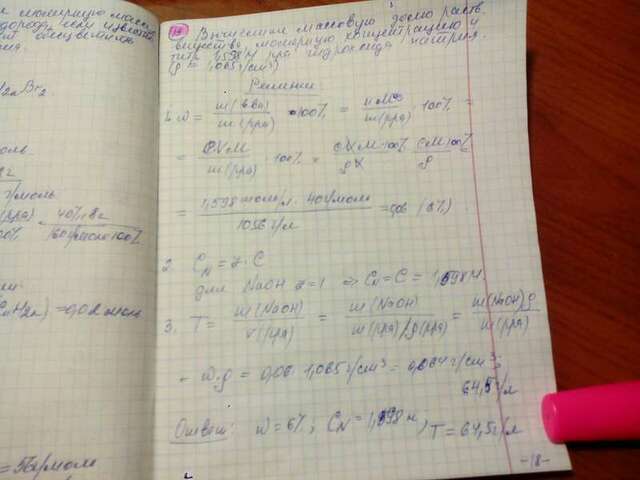 молярную масс
дорода, если извест
ет обесцветить
ния.
2nBr2
моль
г/моль
(рра)
00%
= 40%·8г
160г/моль·100%
CnH2n) = 0,02 моль
= 56г/моль
Вычислить массовую долю раств.
вещества, молярную концентрацию и
титр 1,598н рра гидроксида натрия.
(ρ = 1,065г/см³)
Решение:
1. ω = m(вва)/m(рра) · 100% = nM/m(рра) · 100% =
= CVM/m(рра) · 100% = CVM·100%/ρV = CM·100%/ρ
= 1,598 моль/л · 40г/моль / 1056 г/л = 0,06 (6%)
2. CN = z · C
для NaOH z=1 ⇒ CN = C = 1,598 М
3. T = m(NaOH)/V(рра) = m(NaOH)/m(рра)/ρ(рра) = m(NaOH)ρ/m(рра)
= ω·ρ = 0,06 · 1,065г/см³ = 0,064г/см³ =
64,5г/л
Ответ: ω = 6%; CN = 1,598 н; T = 64,5г/л
-18-